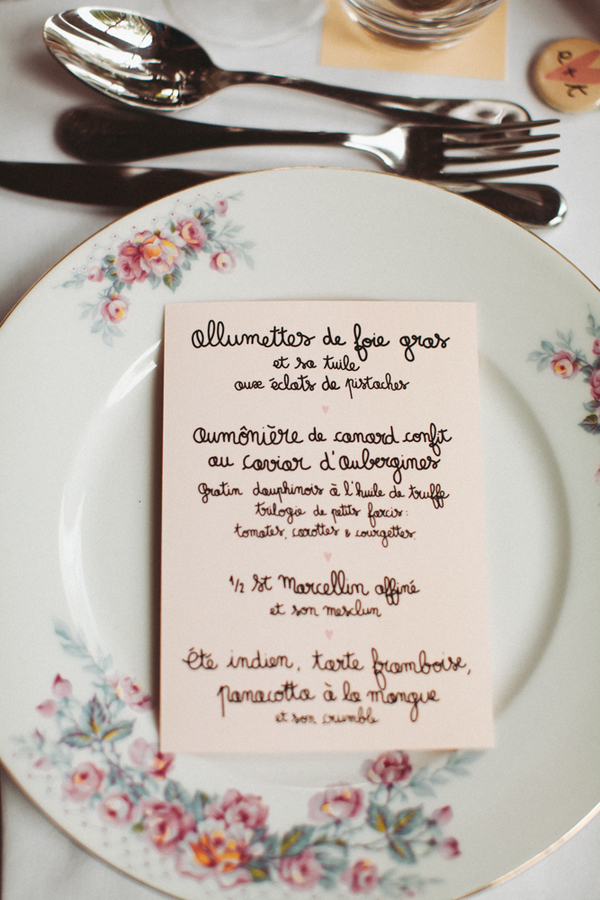 a + k
allumettes de foie gras
et sa tuile
aux éclats de pistaches
aumônière de canard confit
au caviar d'aubergines
gratin dauphinois à l'huile de truffe
trilogie de petits farcis:
tomates, carottes & courgettes.
1/2 St Marcellin affiné
et son mesclun
Été indien, tarte framboise,
panacotta à la mangue
et son crumble